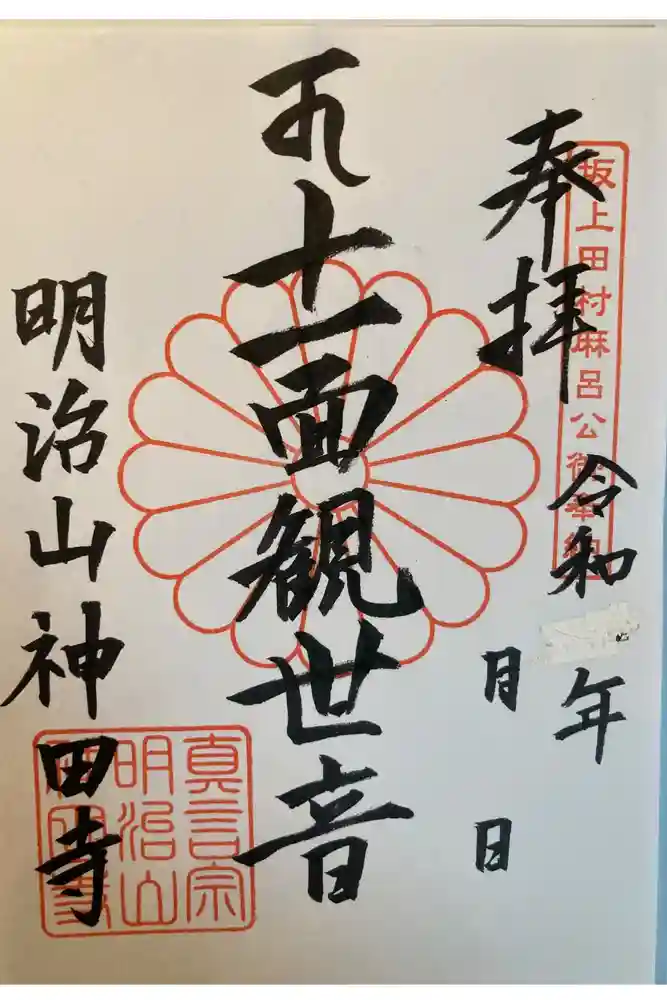 奉拝
坂上田村麻呂公御奉納
令和 年
月 日
十一面観世音
明治山神田寺
真言宗
明治山
神田寺